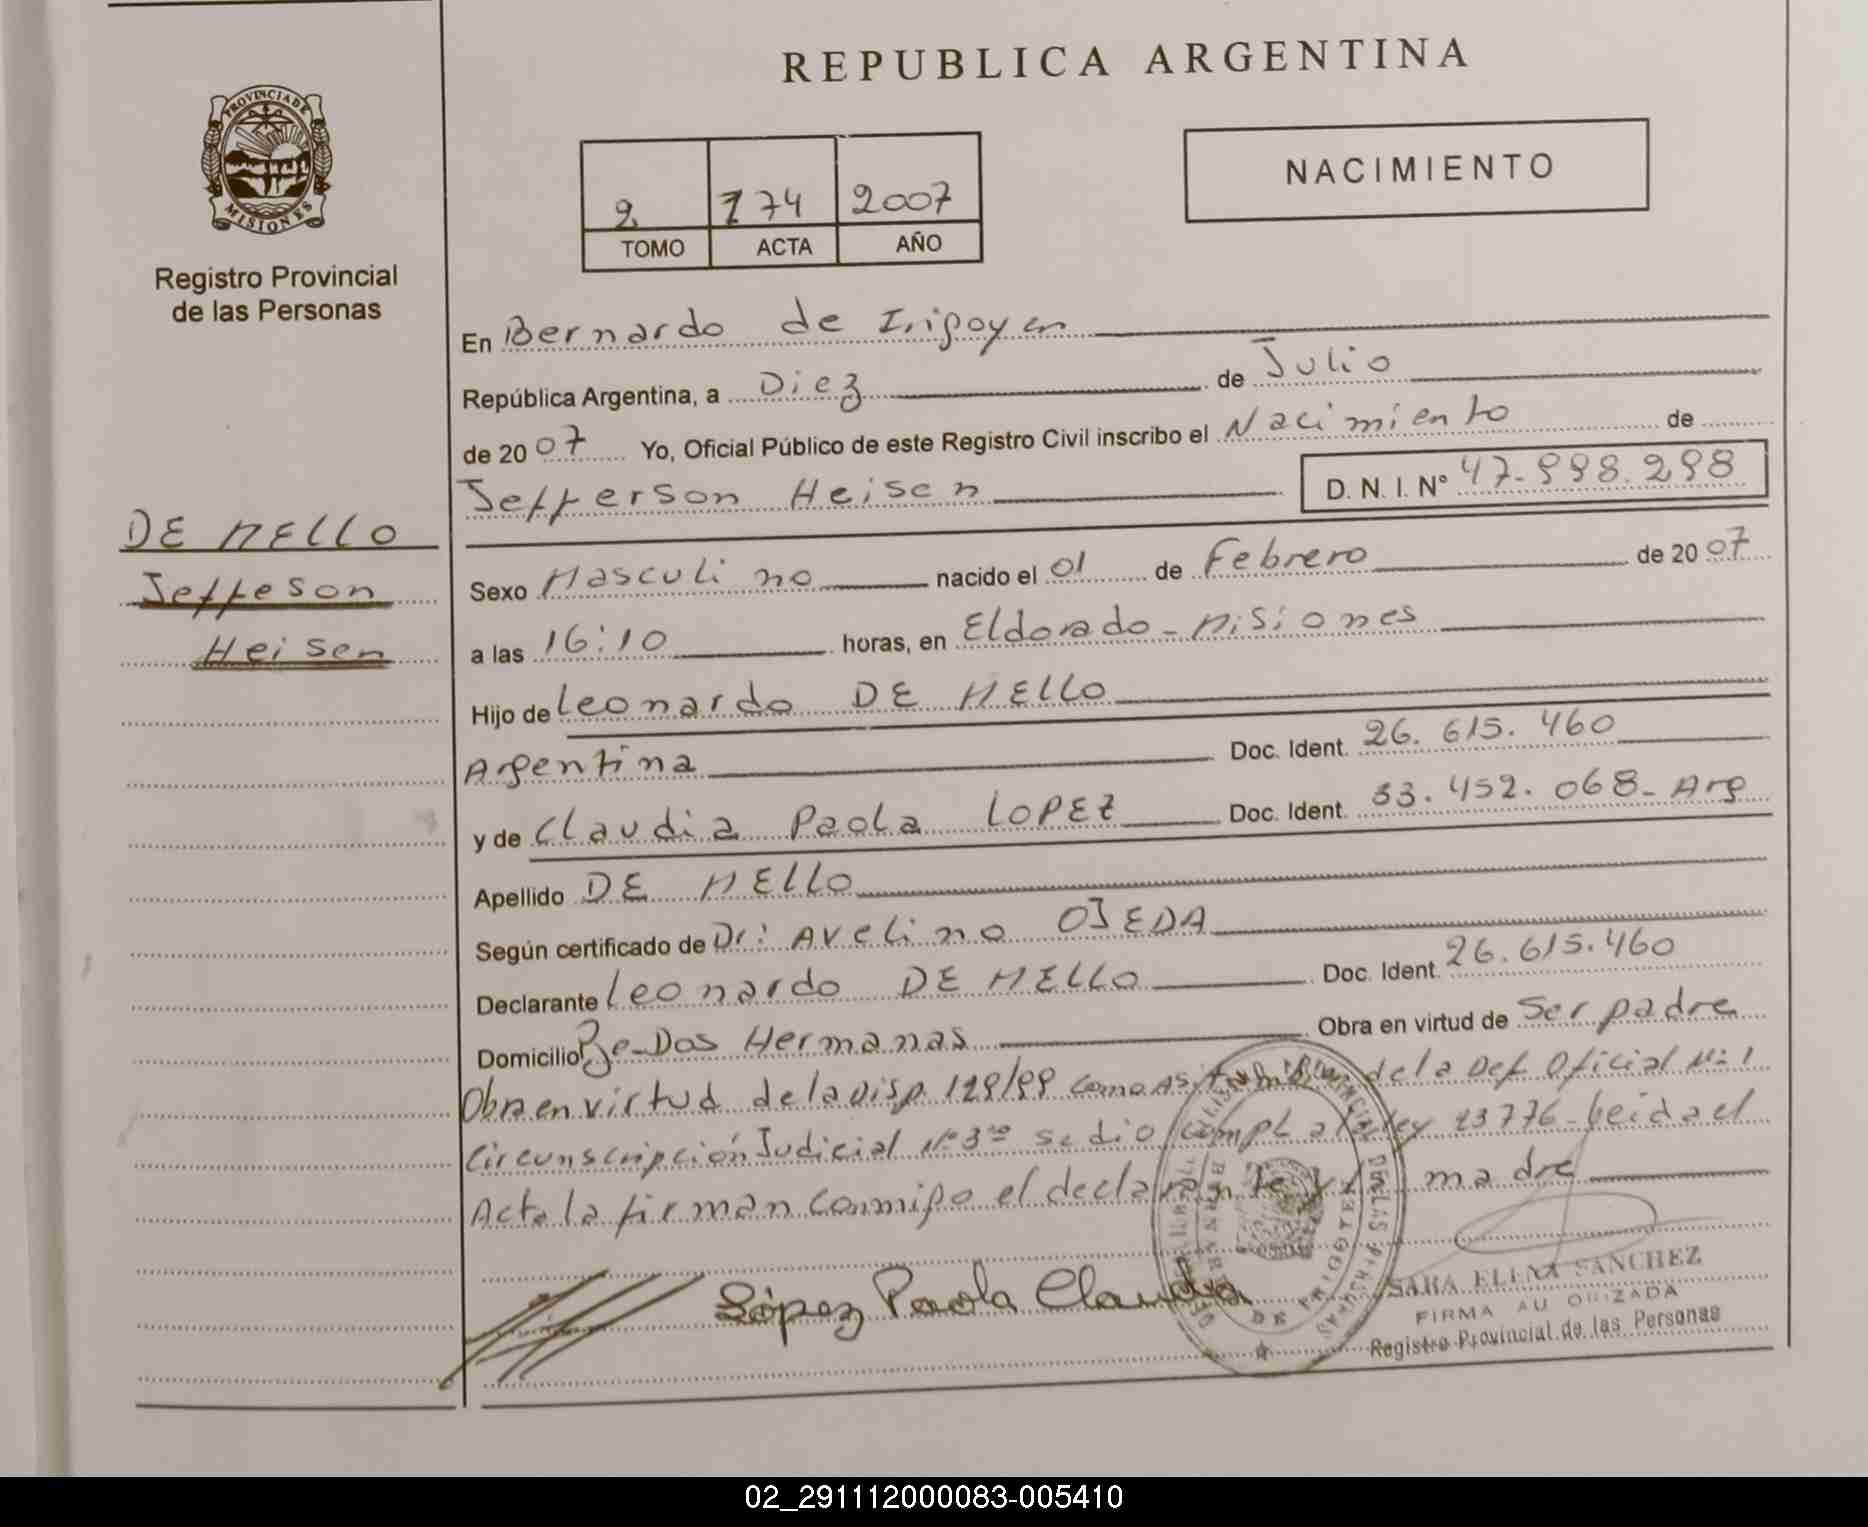 REPUBLICA ARGENTINA
PROVINCIA DE
MISIONES
Registro Provincial
de las Personas
2 174 2007
TOMO ACTA AÑO
NACIMIENTO
En Bernardo de Irigoyen
República Argentina, a Diez de Julio
de 2007 Yo, Oficial Público de este Registro Civil inscribo el Nacimiento de
Jefferson Heisen D. N. I. N° 47-998.298
DE MELLO
Jeffeson
Heisen
Sexo Masculino nacido el 01 de Febrero de 2007
a las 16:10 horas, en Eldorado - Misiones
Hijo de Leonardo DE MELLO
Argentina Doc. Ident. 26.615.460
y de Claudia Paola LOPEZ Doc. Ident. 33.452.068- Arg
Apellido DE MELLO
Según certificado de Dr: Avelino OJEDA
Declarante Leonardo DE MELLO Doc. Ident. 26.615.460
Domicilio Pje-Dos Hermanas Obra en virtud de Ser padre
Obra en virtud de la Disp. 129/99 como de la Def Oficial N: 1
Circunscripción Judicial N° 3ra se dio Compl a la ley 23776- Leida el
Acta la firman conmigo el declarante y madre
López Paola Claudia
SARA ELENA SANCHEZ
FIRMA AUTORIZADA
Registro Provincial de las Personas
02_291112000083-005410